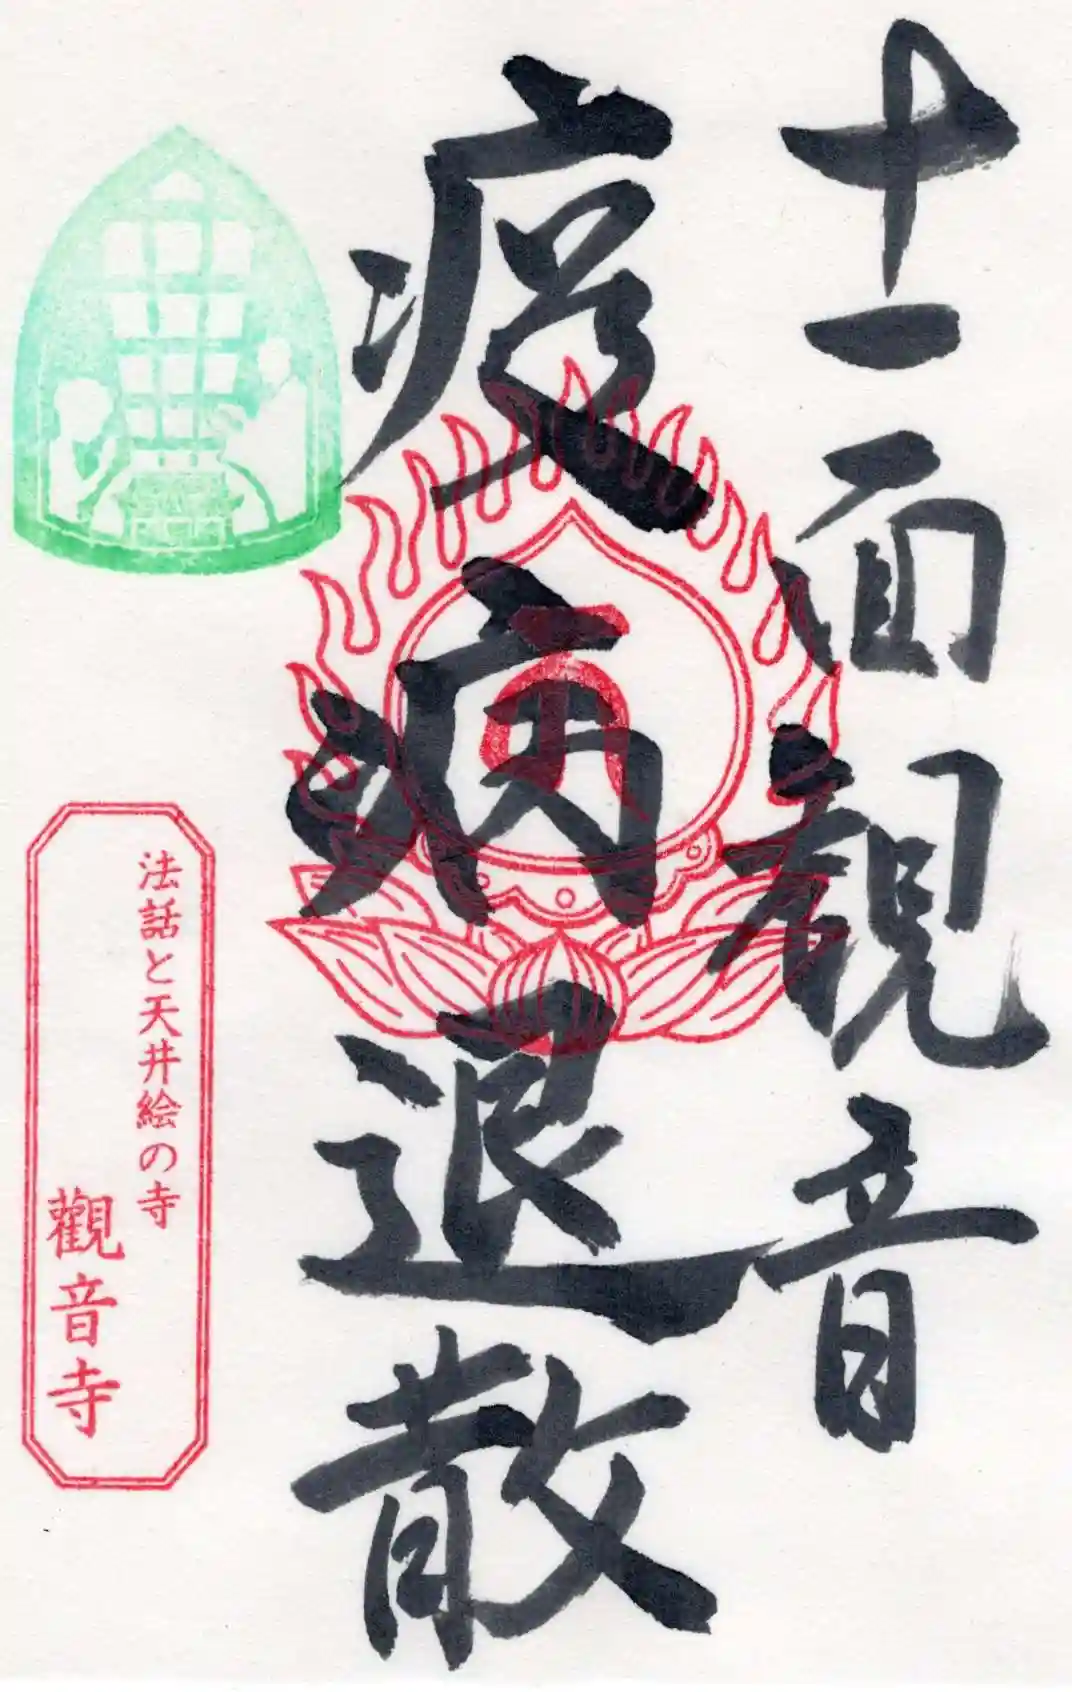 十一面観音
疫病退散
法話と天井絵の寺
觀音寺